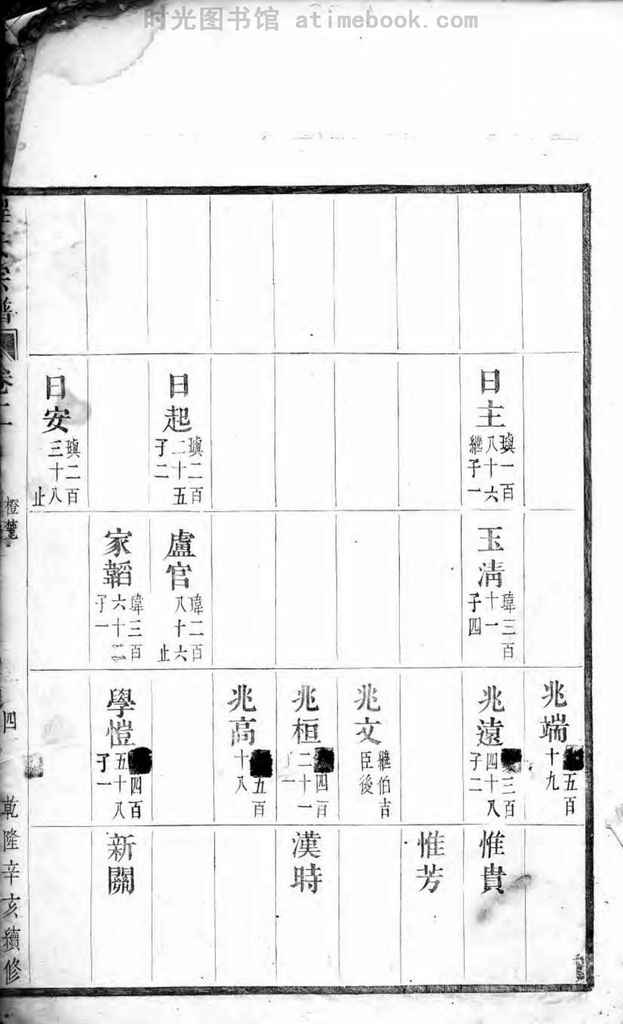 时光图书馆 atimebook.com
日主 瑱一百八十六 繼子一
日起 瑱二百二十五 子二
日安 瑱二百三十八 止
玉清 瑋三百十一 子四
盧官 瑋二百八十六 止
家韜 瑋三百六十二 子一
兆端 五百十九
兆遠 三百四十八 子二
兆文 繼伯吉臣後
兆桓 四百二十一
兆高 五百十八
學愷 四百五十八 子一
惟貴
惟芳
漢時
新關
宗譜 卷二
四
乾隆辛亥續修